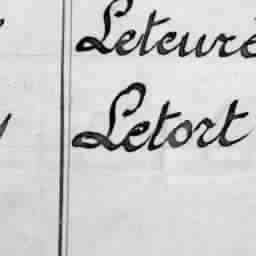 Leteuré
Letort